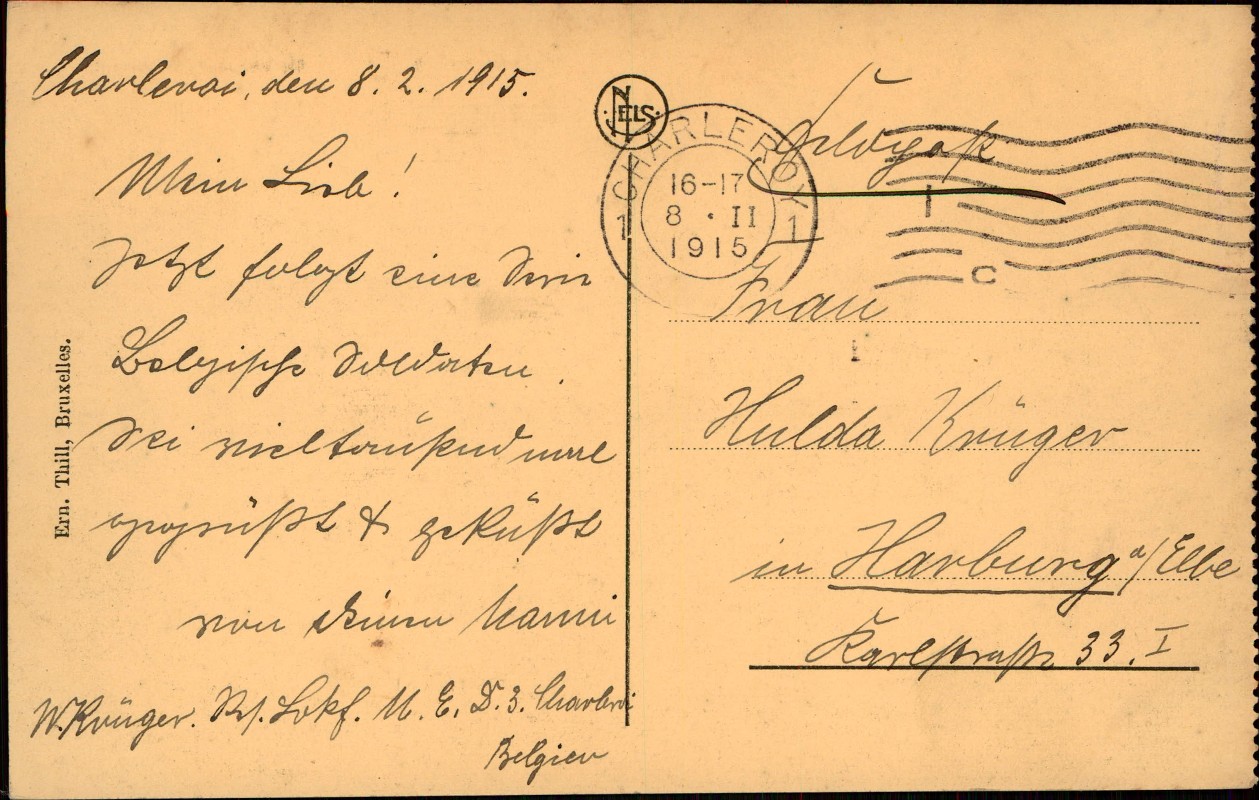 Charleroi, den 8. 2. 1915.
Mein Lieb!
Jetzt folgt eine Serie
Belgische Soldaten.
Sei vieltausendmal
gegrüßt & geküßt
von Deinem Manni
W. Krüger. Rs. Lokf. M. E. D. 3. Charleroi
Belgien
Ern. Thill, Bruxelles.
NELS
CHARLEROY
1 1
16-17
8 · II
1915
C
Feldpost
Frau
Hulda Krüger
in Harburg a/Elbe
Karlstraße 33. I